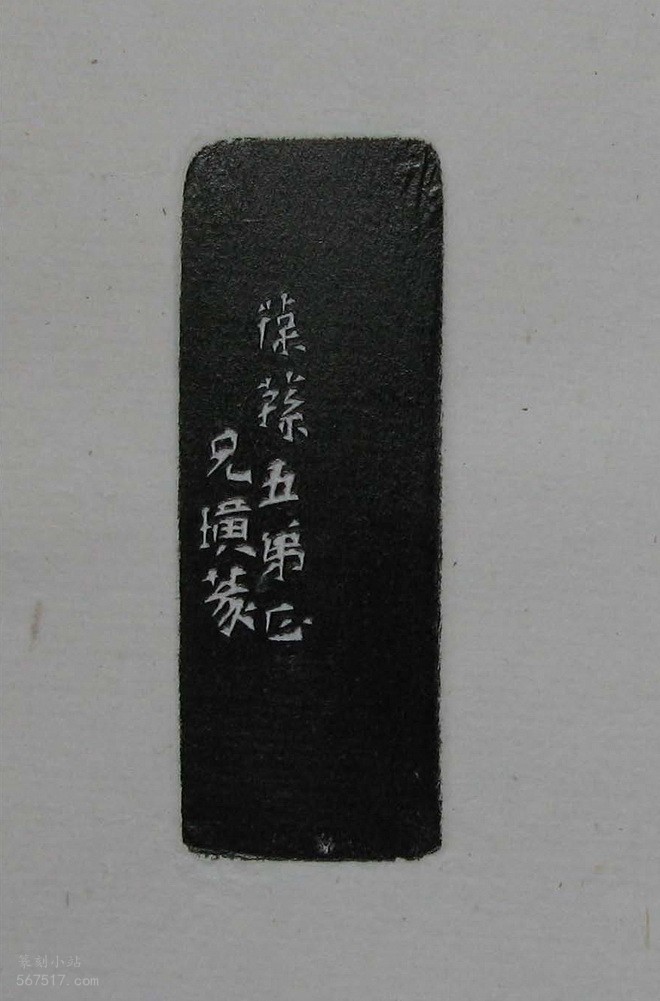 葆蓀五弟正
兄璜篆
篆刻小站
567517.com